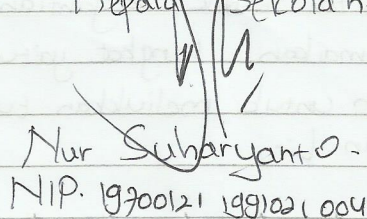 Kepala Sekolah
Nur Suharyanto.
NIP. 19700121 199102 1 004